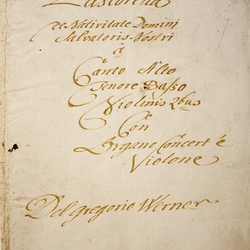 Pastorella
de Nativitate Domini
Salvatoris Nostri
â
Canto Alto
Tenore Basso
Violinis 2bus
Con
Organo Concert è
Violone
Del Gregorio Werner